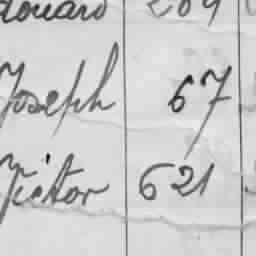 douard 209
Joseph 67
Victor 621